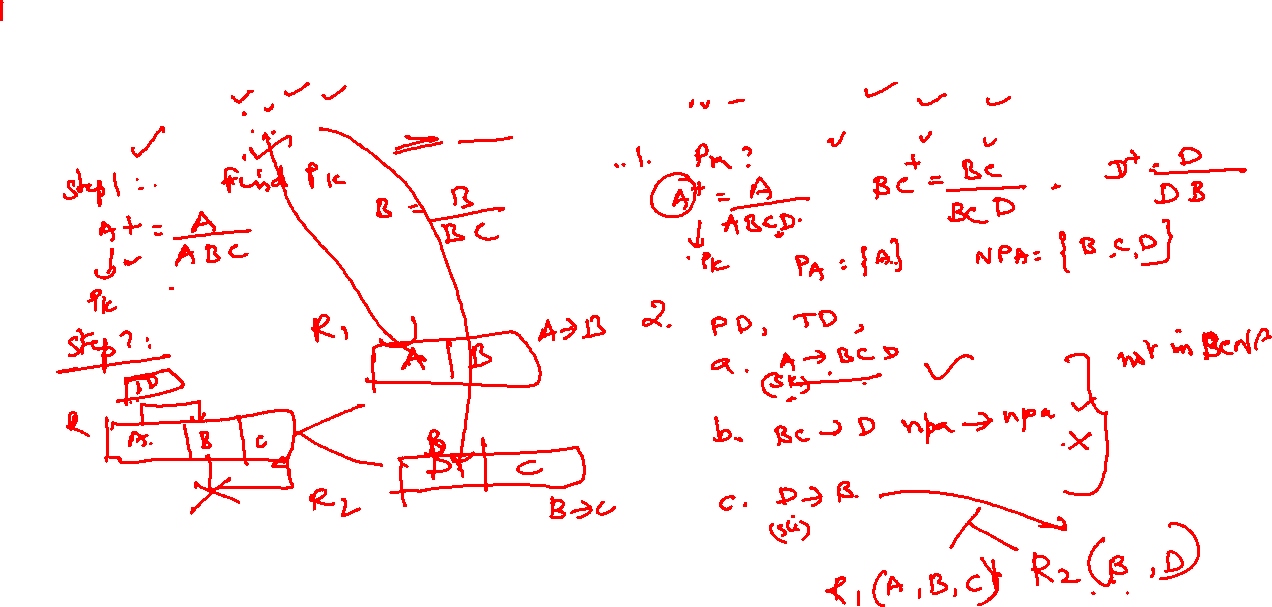 Step 1 :. Find PK
A+ = A
ABC
PK
B = B
BC
Step 2:
TD
R
B C
R1 A B A→B
R2 B C B→C
1. PK?
A+ = A
ABCD.
PK
BC+ = BC
BCD
D+ = D
DB
PA = {A}
NPA = {B,C,D}
2. PD, TD,
a. A → BCD
(SK)
b. BC → D npa → npa
c. D → B
not in BCNF
R1(A,B,C) R2(B,D)